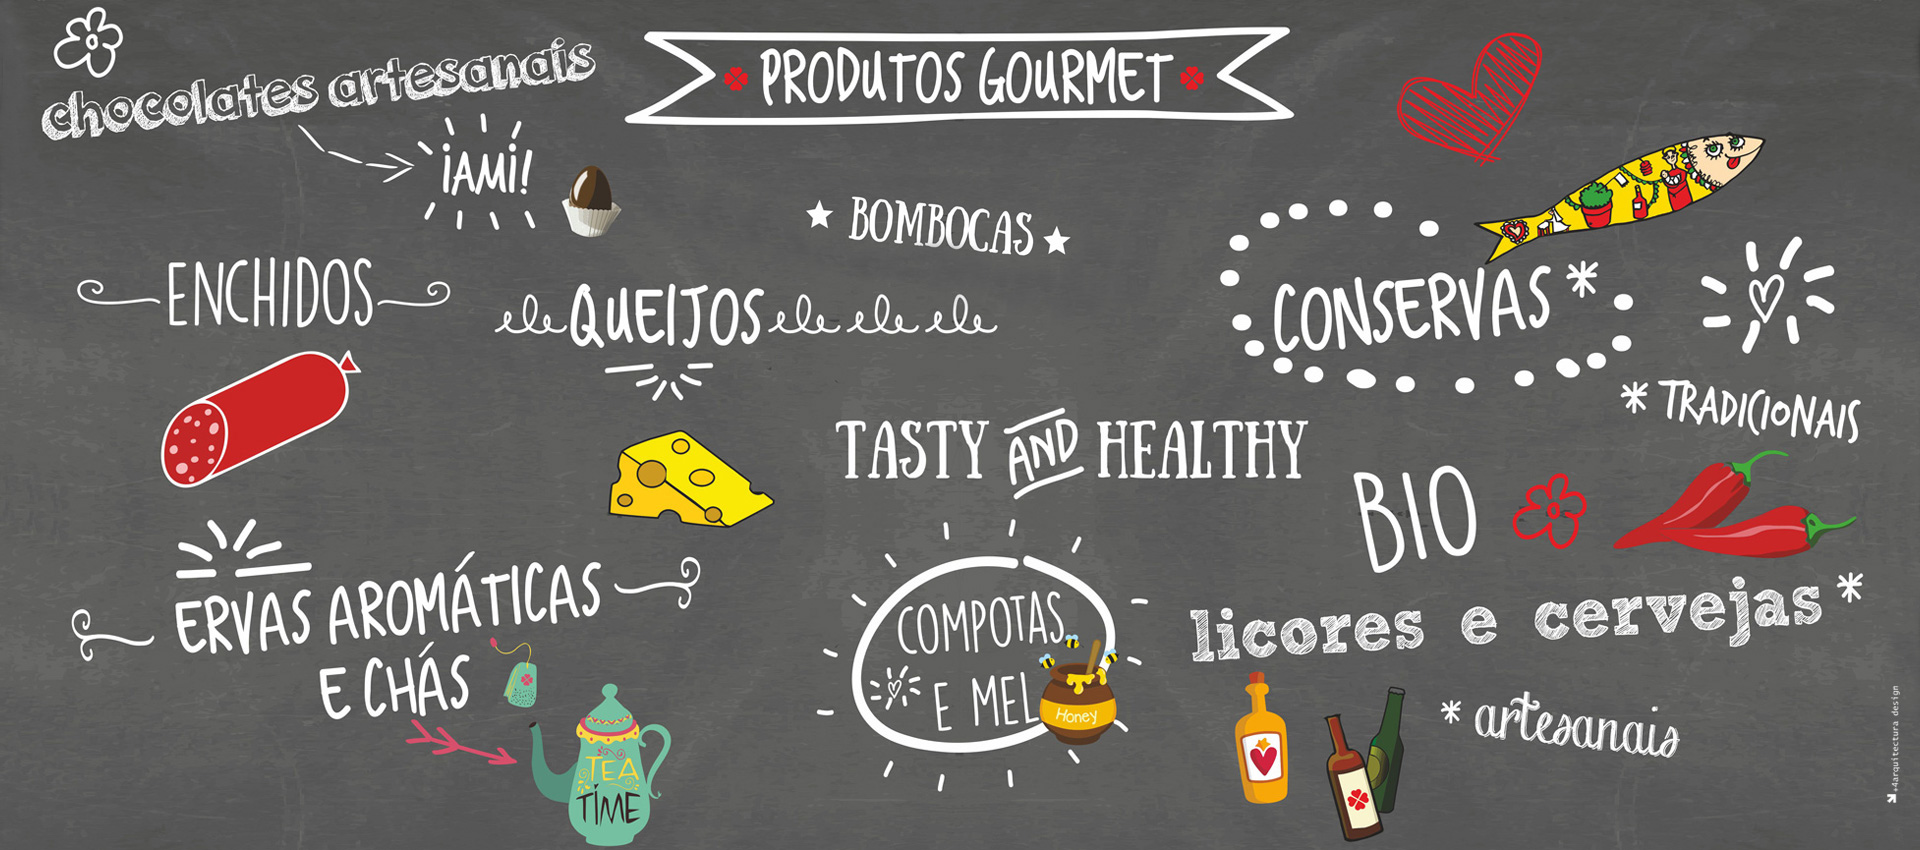 PRODUTOS GOURMET
chocolates artesanais
¡AMI!
★ BOMBOCAS ★
ENCHIDOS
QUEIJOS
CONSERVAS *
* TRADICIONAIS
TASTY AND HEALTHY
BIO
ERVAS AROMÁTICAS
E CHÁS
TEA
TIME
COMPOTAS
E MEL
Honey
licores e cervejas *
* artesanais
+4arquitectura design